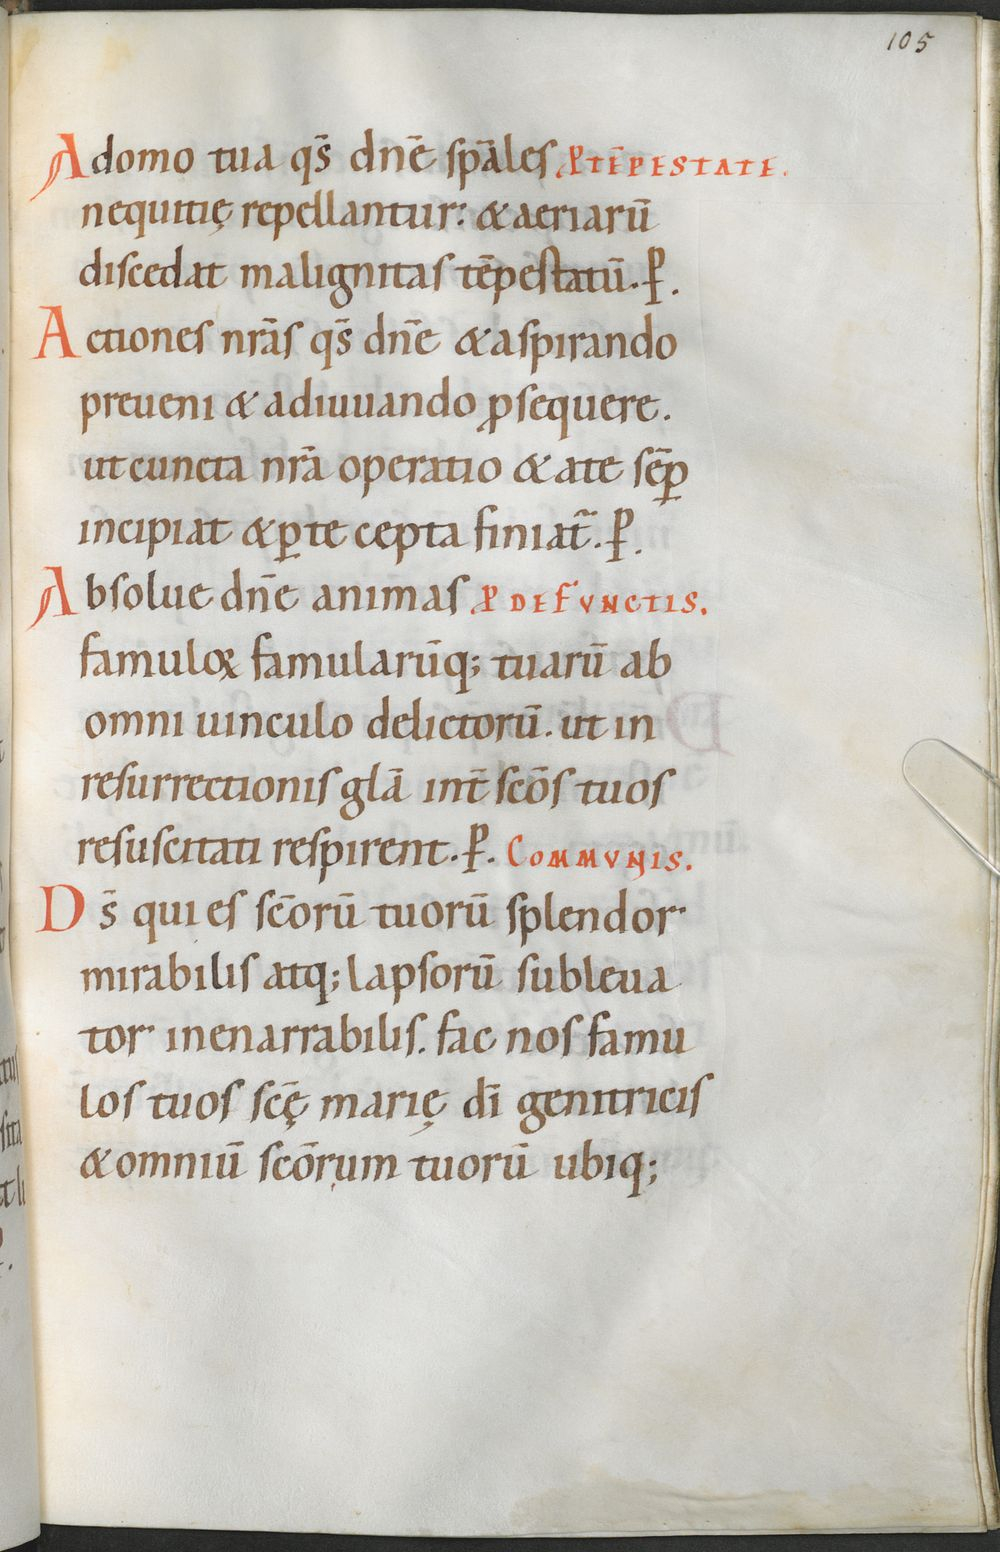 105
A domo tua qs̄ dn̄e sp̄ales P TĒPESTATE.
nequitię repellantur: & aeriarū
discedat malignitas tēpestatū. P.
Actiones nr̄as qs̄ dn̄e & aspirando
preueni & adiuuando ꝓsequere.
ut cuncta nr̄a operatio & a te sēꝑ
incipiat & ꝑ te cepta finiat̄. P.
Absolue dn̄e animas P DEFUNCTIS.
famuloꝝ famularūq; tuarū ab
omni uinculo delictorū. ut in
resurrectionis gl̄a int̄ sc̄os tuos
resuscitati respirent. P. COMMVNIS.
Ds̄ qui es sc̄orū tuorū splendor
mirabilis atq; lapsorū subleua
tor inenarrabilis. fac nos famu
los tuos sc̄ę marię dī genitricis
& omniū sc̄orum tuorū ubiq;